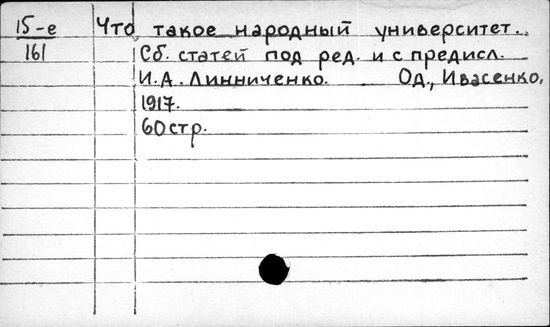 15-е Что такое народный университет.
161 Сб. статей под ред. и с предисл.
И.А. Линниченко. Од., Ивасенко,
1917.
60 стр.